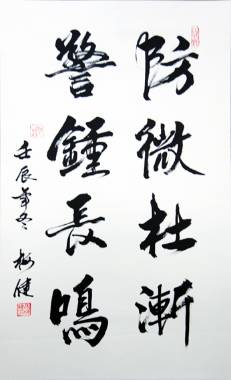 防微杜漸
警鍾長鳴
壬辰年冬 楊健